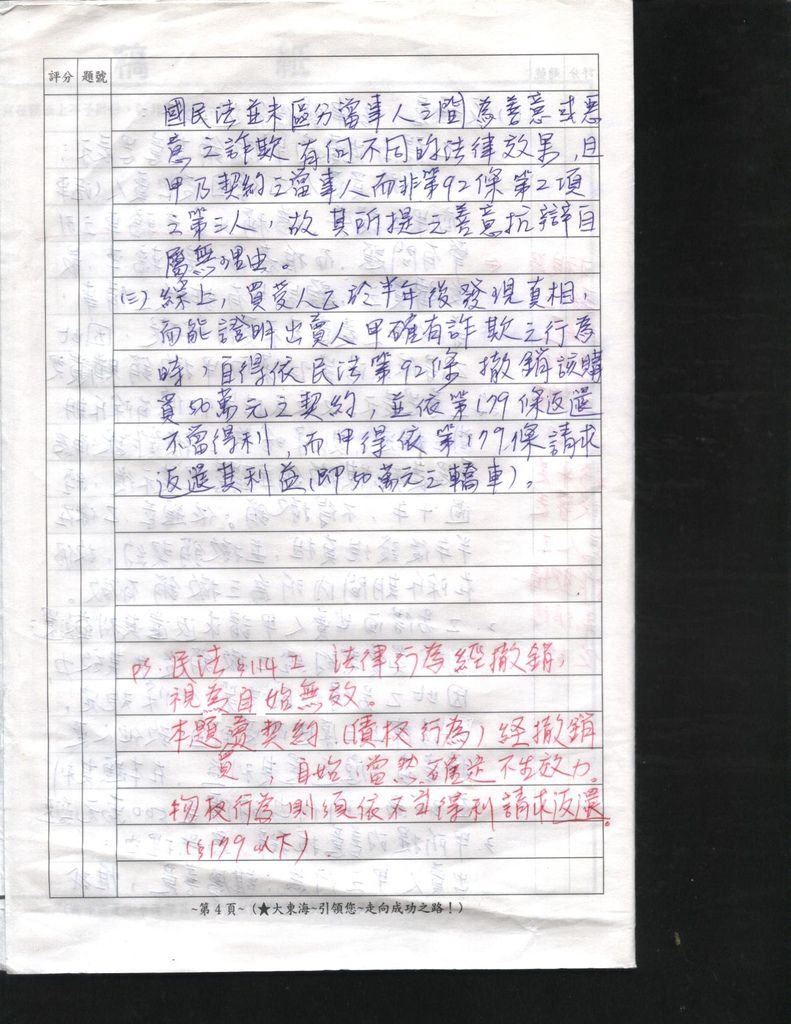 評分 題號
國民法並未區分當事人之間為善意或惡
意之詐欺有何不同的法律效果,且
甲乃契約之當事人而非第92條第2項
之第三人,故其所提之善意抗辯自
屬無理由。
(三)綜上,買受人乙於半年後發現真相,
而能證明出賣人甲確有詐欺之行為
時,自得依民法第92條撤銷該購
買50萬元之契約,並依第179條返還
不當得利,而甲得依第179條請求
返還其利益(即50萬元之轎車)。
ps. 民法§114 I 法律行為經撤銷,
視為自始無效。
本題賣契約(債权行為)経撤銷
買,自始當然確定不生效力。
物权行為則須依不当得利請求返還。
(§179以下)。
~第4頁~(★大東海~引領您~走向成功之路!)